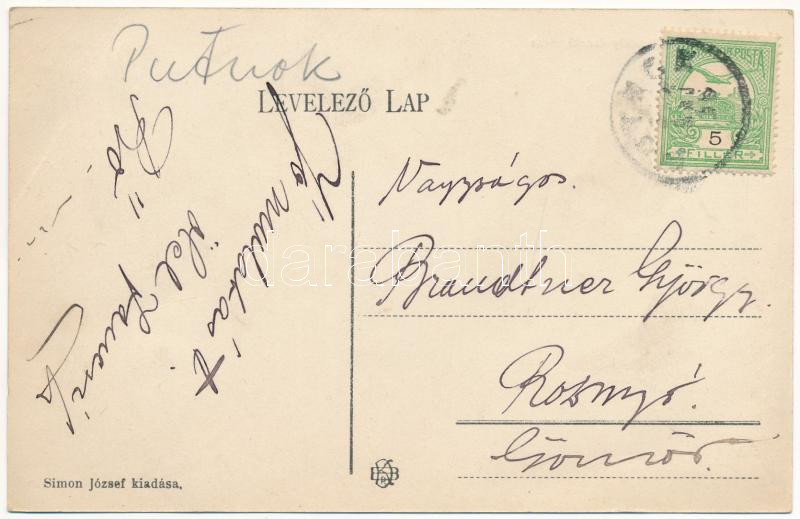 Putnok
LEVELEZŐ LAP
Jó mulatást
ölel
POSTA
5
FILLÉR
Nagyságos.
Brandtner György.
Rozsnyó.
Gömör.
Simon József kiadása.
darabanth